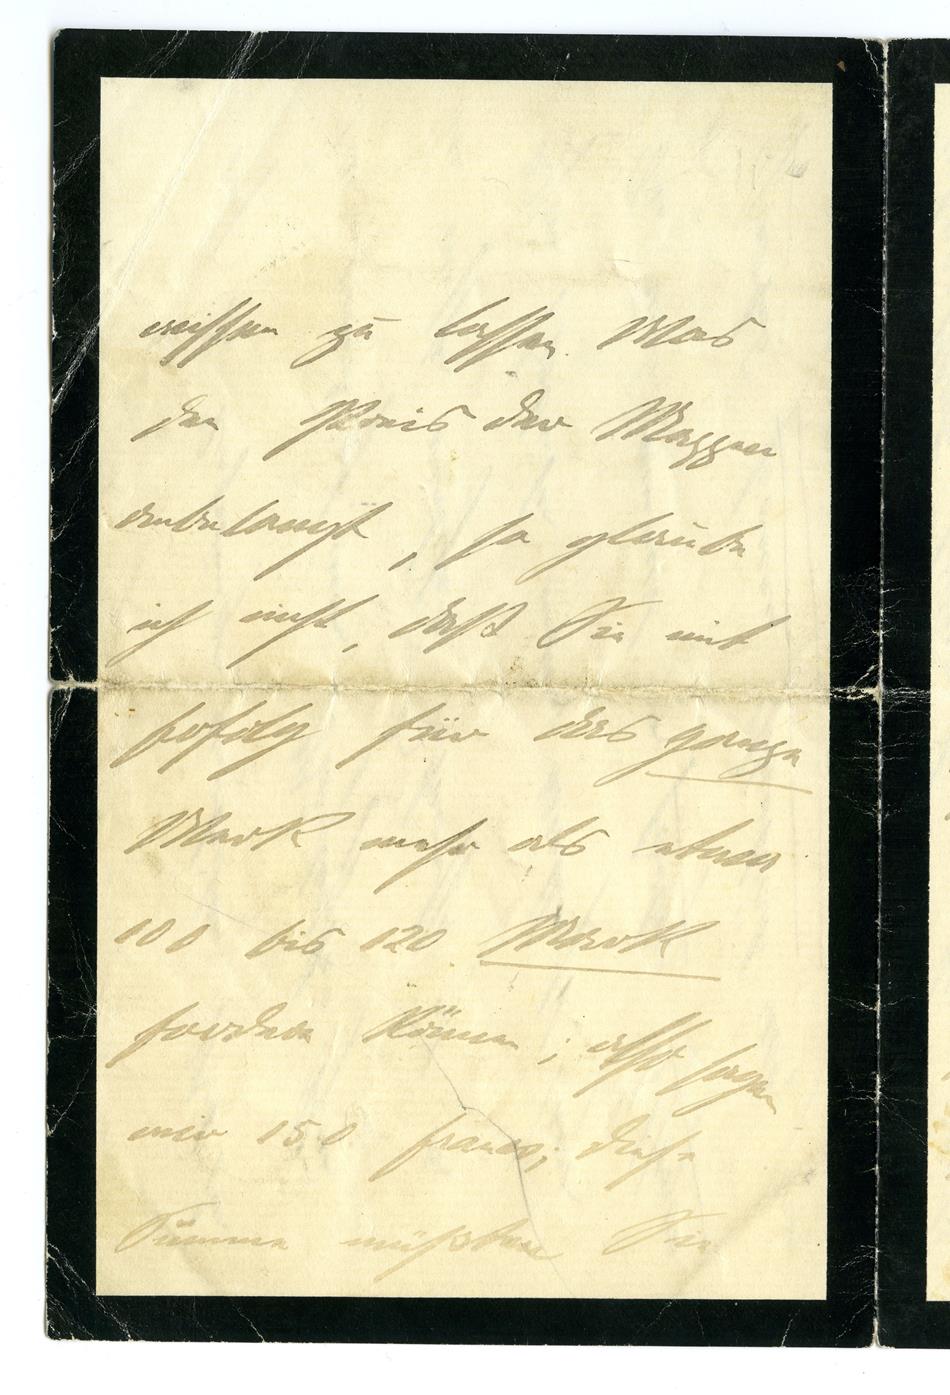 wissen zu lassen. Was
den Preis der Mappen
anbelangt, so glaube
ich nicht, daß Sie mit
Erfolg für das ganze
Werk mehr als etwa
100 bis 120 Mark
fordern können; also sagen
wir 150 francs; diese
Summe müßten Sie